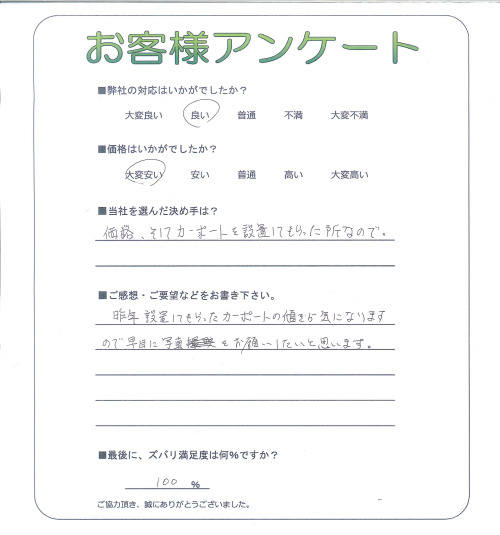 お客様アンケート
■弊社の対応はいかがでしたか？
大変良い 良い 普通 不満 大変不満
■価格はいかがでしたか？
大変安い 安い 普通 高い 大変高い
■当社を選んだ決め手は？
価格、そしてカーポートを設置してもらった所なので。
■ご感想・ご要望などをお書き下さい。
昨年設置してもらったカーポートの値きが気になります
ので早目に写真をお願いしたいと思います。
■最後に、ズバリ満足度は何％ですか？
100 ％
ご協力頂き、誠にありがとうございました。